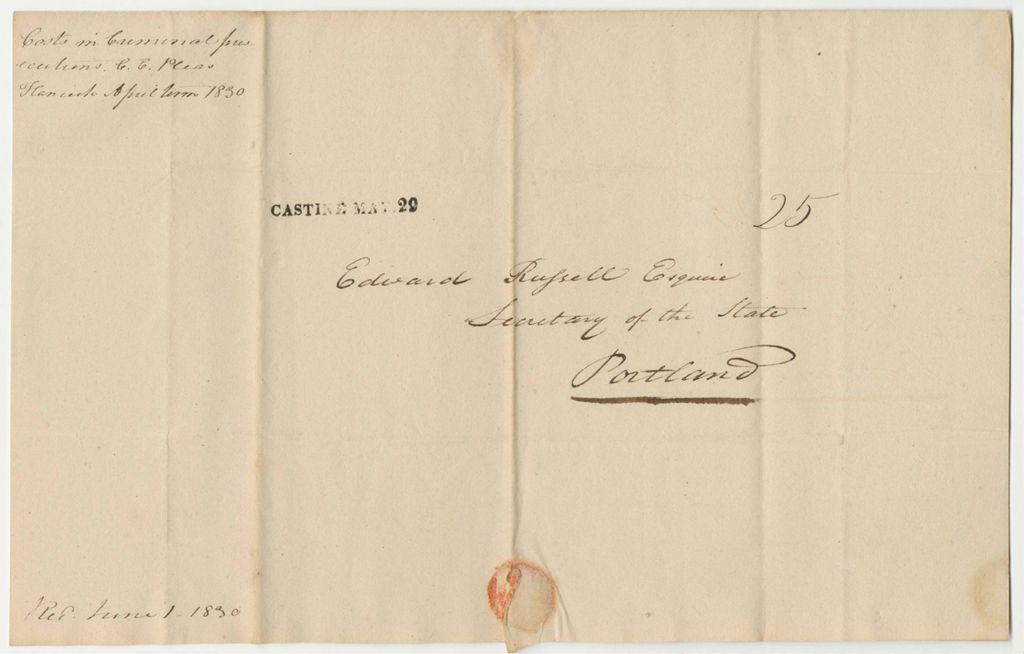 Costs in Criminal pros-
ecutions. C. C. Pleas
Hancock April term 1830
CASTINE MAY. 29
25
Edward Russell Esquire
Secretary of the State
Portland
Rec'd. June 1 - 1830